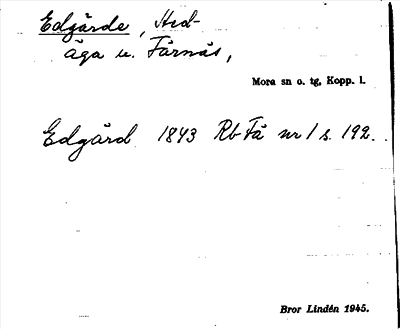 Edgärde, Hed-
äga u. Färnäs,
Mora sn o. tg, Kopp. l.
Edgärd 1843 Rb Fä nr 1 s. 192.
Bror Lindén 1945.